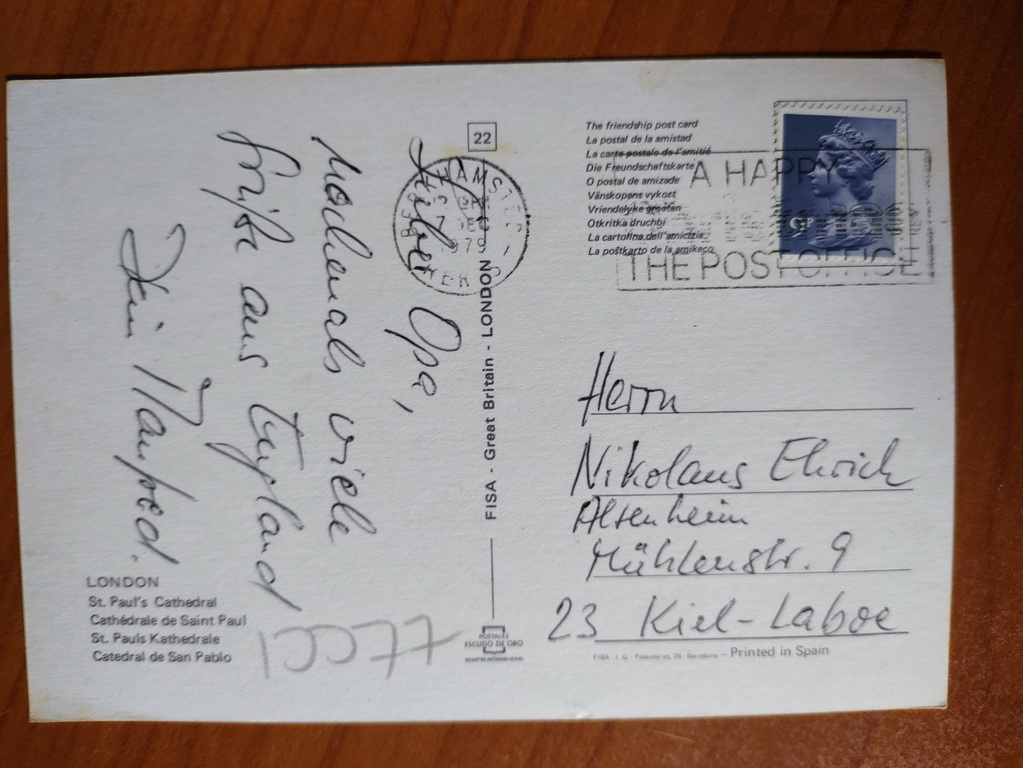 Lieber Opa,
nochmals viele
Grüße aus England
Dein Manfred.
LONDON
St. Paul's Cathedral
Cathédrale de Saint Paul
St. Pauls Kathedrale
Catedral de San Pablo
22
FISA - Great Britain - LONDON
POSTALES
ESCUDO DE ORO
The friendship post card
La postal de la amistad
La carte postale de l'amitié
Die Freundschaftskarte
O postal de amizade
Vänskopens vykort
Vriendelyke groeten
Otkritka druchbi
La cartolina dell'amicizia
La poŝtkarto de la amikeco
9P
A HAPPY
THE POST OFFICE
Herrn
Nikolaus Ehrich
Altenheim
Mühlenstr. 9
23 Kiel-Laboe
Printed in Spain